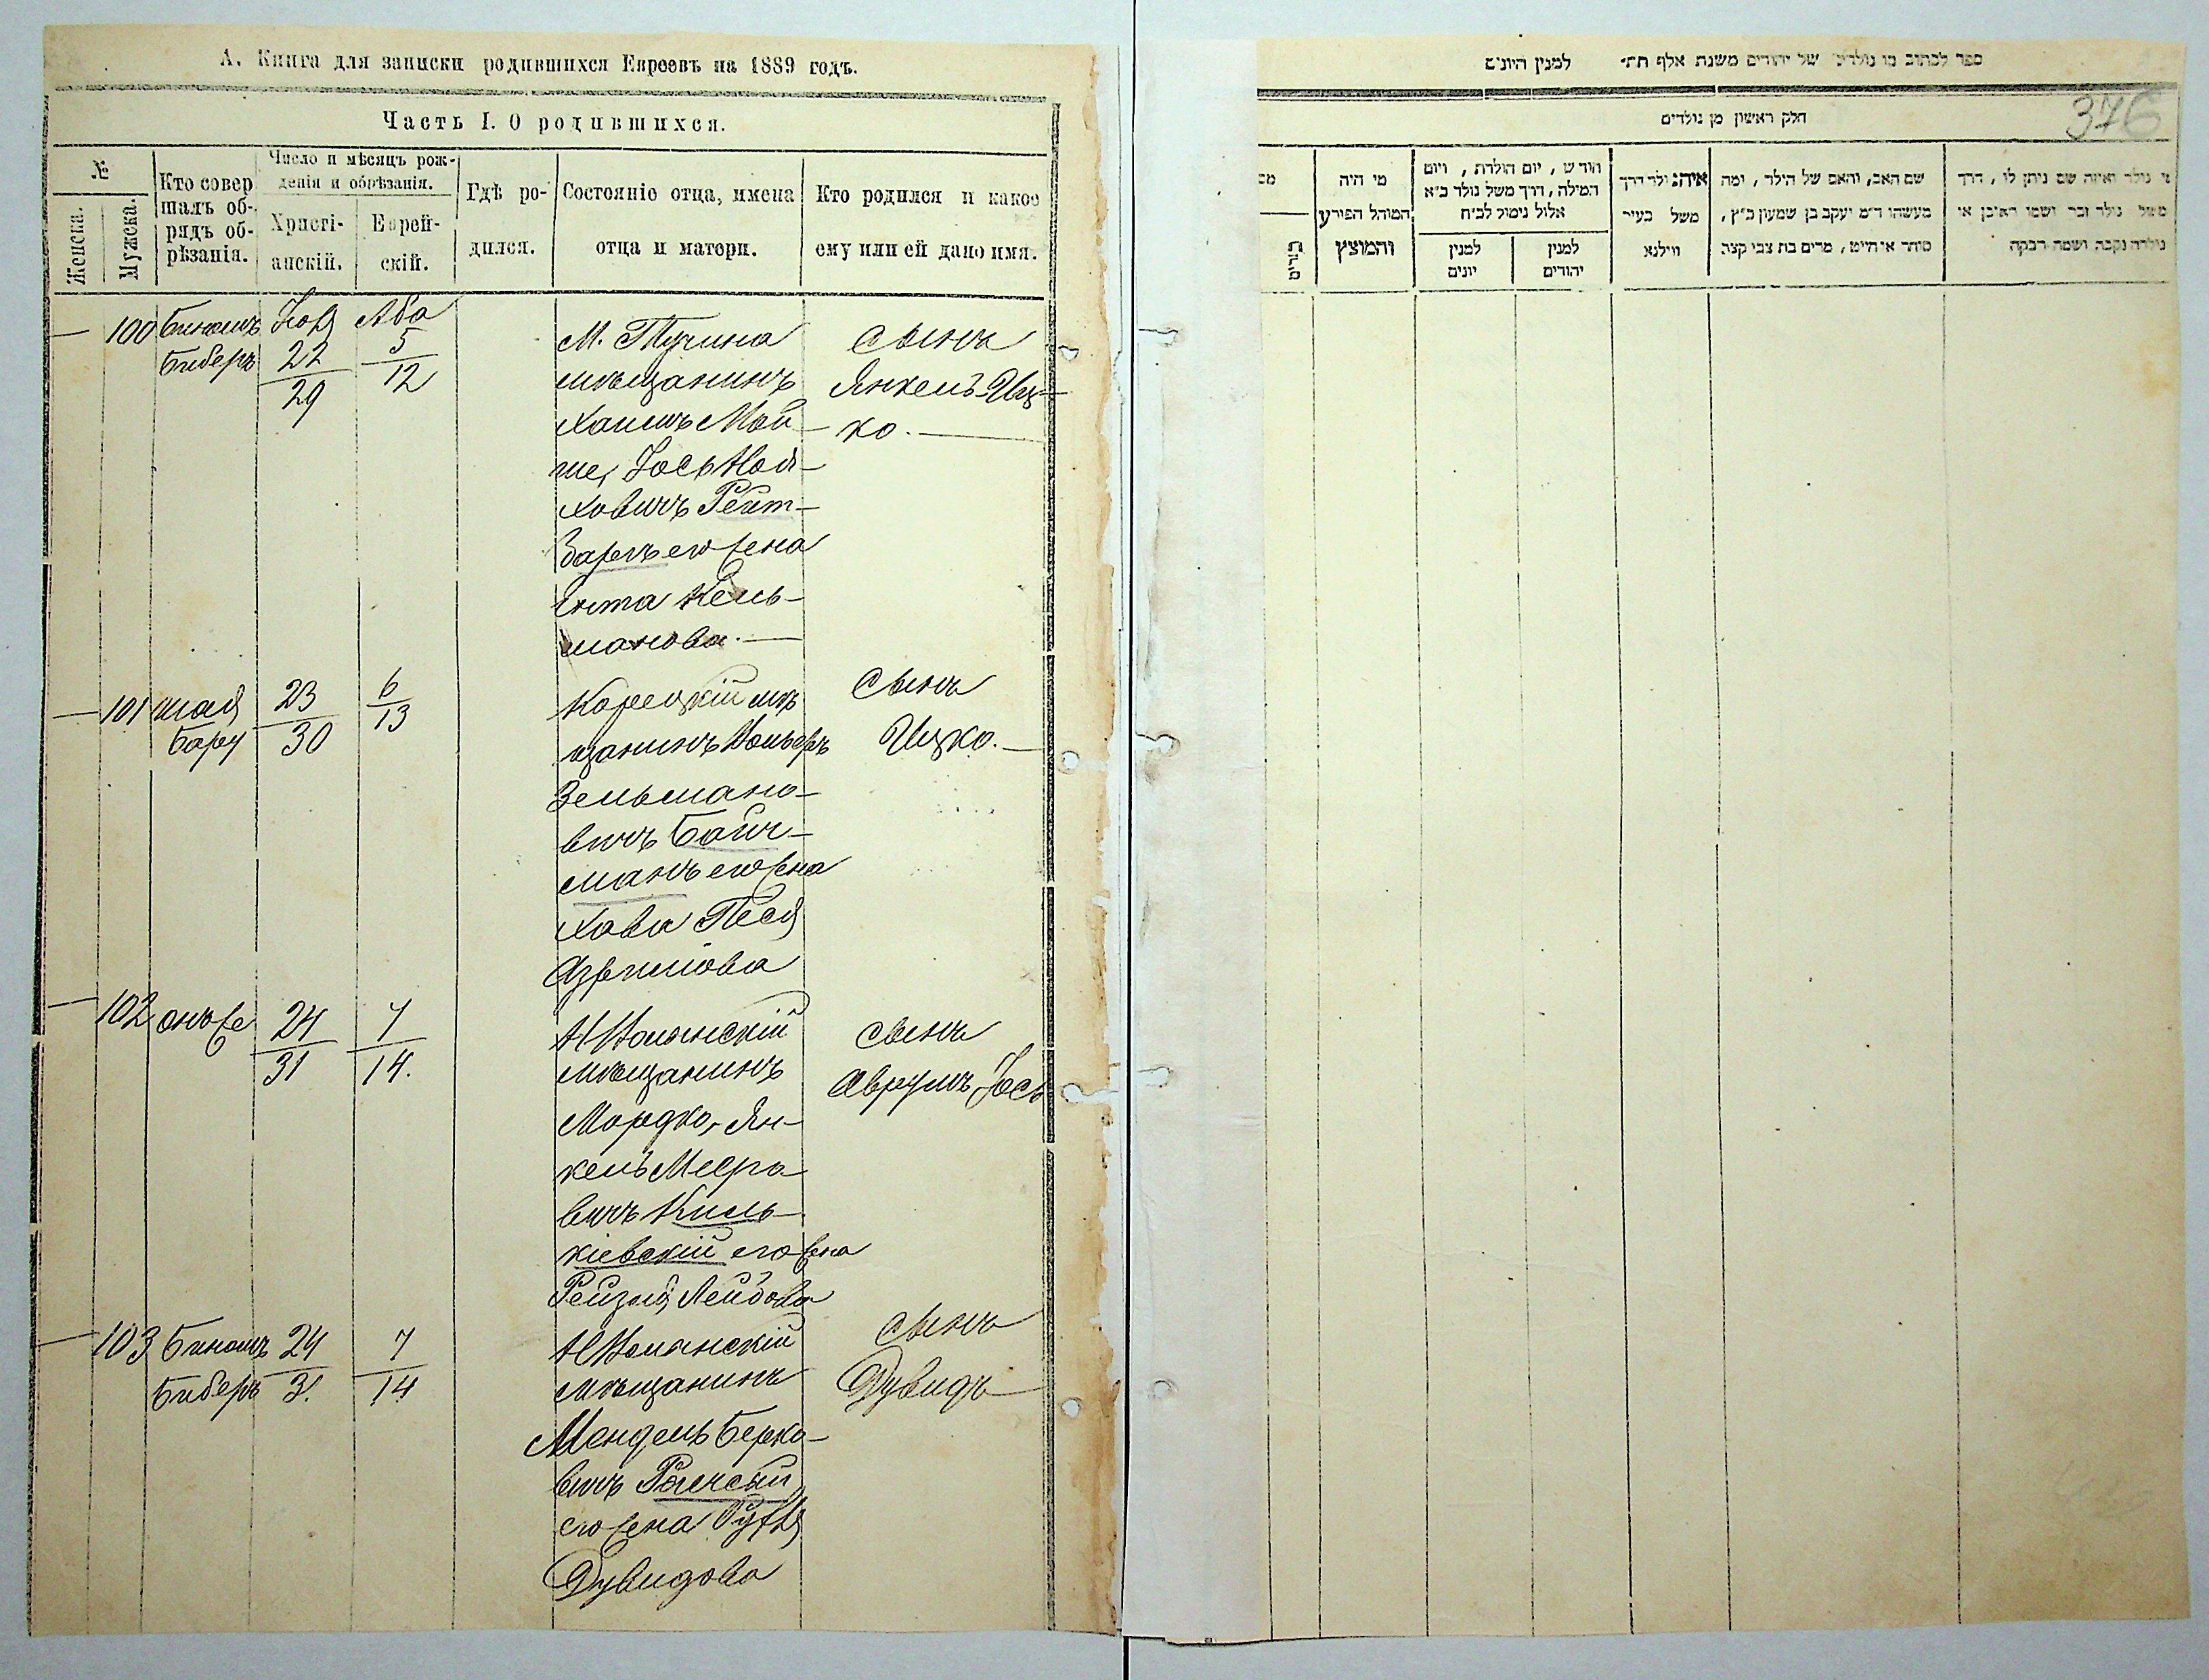 А. Книга для записки родившихся Евреевъ на 1889 годъ.
Часть I. О родившихся.
№
Женска.
Мужеска.
Кто совер
шалъ об-
рядъ об-
рѣзанія.
Число и мѣсяцъ рож-
денія и обрѣзанія.
Христі-
анскій.
Еврей-
скій.
Гдѣ ро-
дился.
Состояніе отца, имена
отца и матери.
Кто родился и какое
ему или ей дано имя.
— 100
Биномъ
Биберъ
Іюля
22
29
Аба
5
12
М. Тучина
мѣщанинъ
Хаимъ Мой-
ше, Іось Ной-
ховичъ Рейт-
баръ его жена
Кель-
манова. —
сынъ
Янкель-Иц-
ко. —
— 101
Шая
Бару
23
30
6
13
Корецкій мѣ
щанинъ
Зельмано-
вичъ Байч-
манъ его жена
Хава Песя
Азрилiова
сынъ
Ицко. —
— 102
онъ же
24
31
7
14.
НВолынскій
мѣщанинъ
Мордко, Ян-
кель Меера
вичъ Киль-
кіевскій его жена
Рейзя Лейбова
сынъ
Аврумъ Іось
— 103
Биномъ
Биберъ
24
31
7
14
НВолынскій
мѣщанинъ
Мендель Берко-
вичъ
его жена
Дувидова
сынъ
Дувидъ —
ספר לכתוב מן נולדים של יהודים משנת אלף תת׳ למנין היונים
376
חלק ראשון מן נולדים
מי היה
המוהל הפורע
והמוצץ
חודש, יום הולדת, ויום
המילה, דרך משל נולד כ״א
אלול נימול לכ״ח
למנין
יונים
למנין
יהודים
איה נולד דרך
משל בעיר
ווילנא
שם האב, והאם של הילד, ומה
מעשהו ד״מ יעקב בן שמעון כ״ץ,
סוחר או חייט, מרים בת צבי קצה
מי נולד ואיזה שם ניתן לו, דרך
משל נולד זכר ושמו ראובן או
נולדה נקבה ושמה רבקה